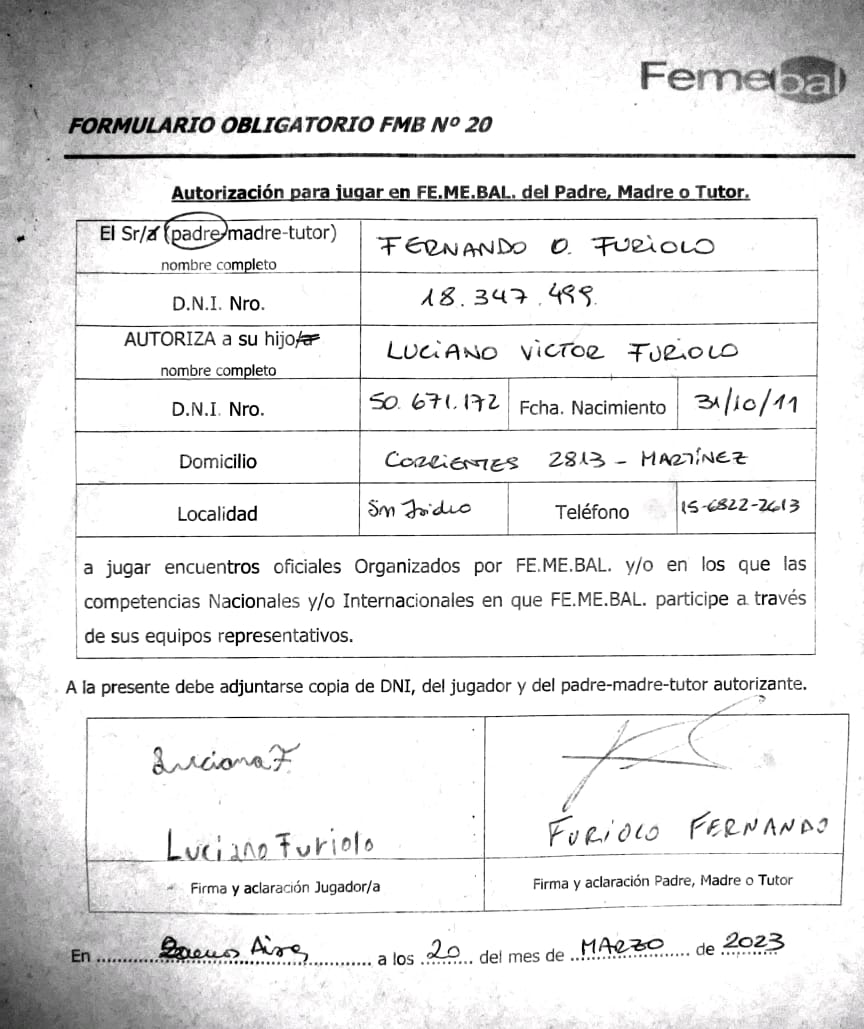 Femebal
FORMULARIO OBLIGATORIO FMB Nº 20
Autorización para jugar en FE.ME.BAL. del Padre, Madre o Tutor.
El Sr/a (padre/madre-tutor) FERNANDO D. FURIOLO
nombre completo
D.N.I. Nro. 18.347.499.
AUTORIZA a su hijo/a LUCIANO VICTOR FURIOLO
nombre completo
D.N.I. Nro. 50.671.172 Fcha. Nacimiento 31/10/11
Domicilio CORRIENTES 2813 - MARTÍNEZ
Localidad Sn Isidro Teléfono 15-6822-2613
a jugar encuentros oficiales Organizados por FE.ME.BAL. y/o en los que las
competencias Nacionales y/o Internacionales en que FE.ME.BAL. participe a través
de sus equipos representativos.
A la presente debe adjuntarse copia de DNI, del jugador y del padre-madre-tutor autorizante.
Luciano F.
Luciano Furiolo FURIOLO FERNANDO
Firma y aclaración Jugador/a Firma y aclaración Padre, Madre o Tutor
En Buenos Aires a los 20 del mes de MARZO de 2023